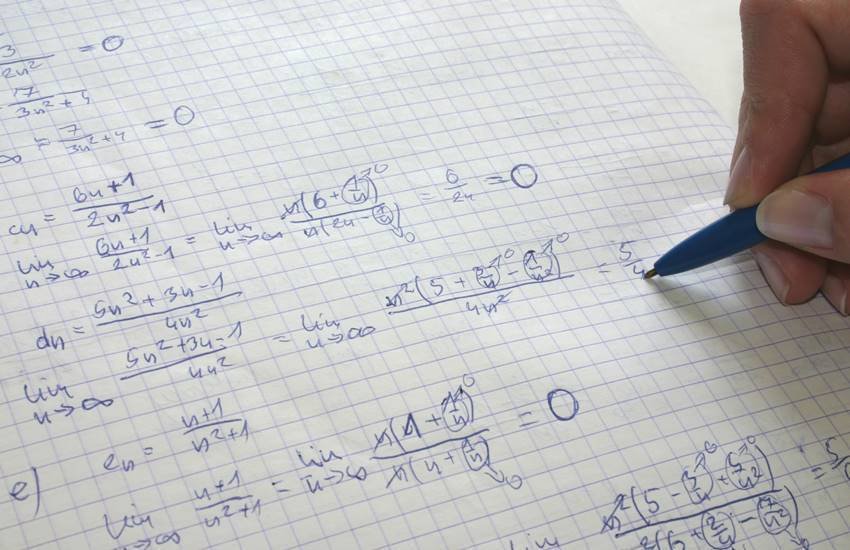 3/2n² = 0
7/3n²+4
∞ = 7/3n²+4 = 0
cn = 6n+1/2n²-1
lim n→∞ 6n+1/2n²-1 = lim n→∞ n(6+(1/n)→0)/n(2n-(1/n)→0) = 6/2n = 0
dn = 5n²+3n-1/4n²
lim n→∞ 5n²+3n-1/4n² = lim n→∞ n²(5+(3/n)→0-(1/n²)→0)/4n² = 5/4
en = n+1/n²+1
e) lim n→∞ n+1/n²+1 = lim n→∞ n(1+(1/n)→0)/n(n+(1/n)→0) = 0
lim n²(5-(3/n)→0+(5/n²)→0)